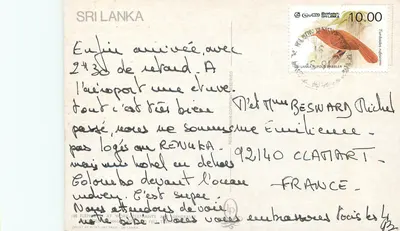 SRI LANKA
10.00
Enfin arrivée, avec
2h30 de retard. A
l'aéroport une étuve.
tout c'est très bien
passé, nous ne sommes
pas logés au RENUKA.
mais un hotel en dehors
Colombo devant l'océan
indien. C'est super.
Nous attendons de voir
notre
Nous vous embrassons tous les
M et Mme BESNARD Michel
Emilienne
92140 CLAMART.
FRANCE.